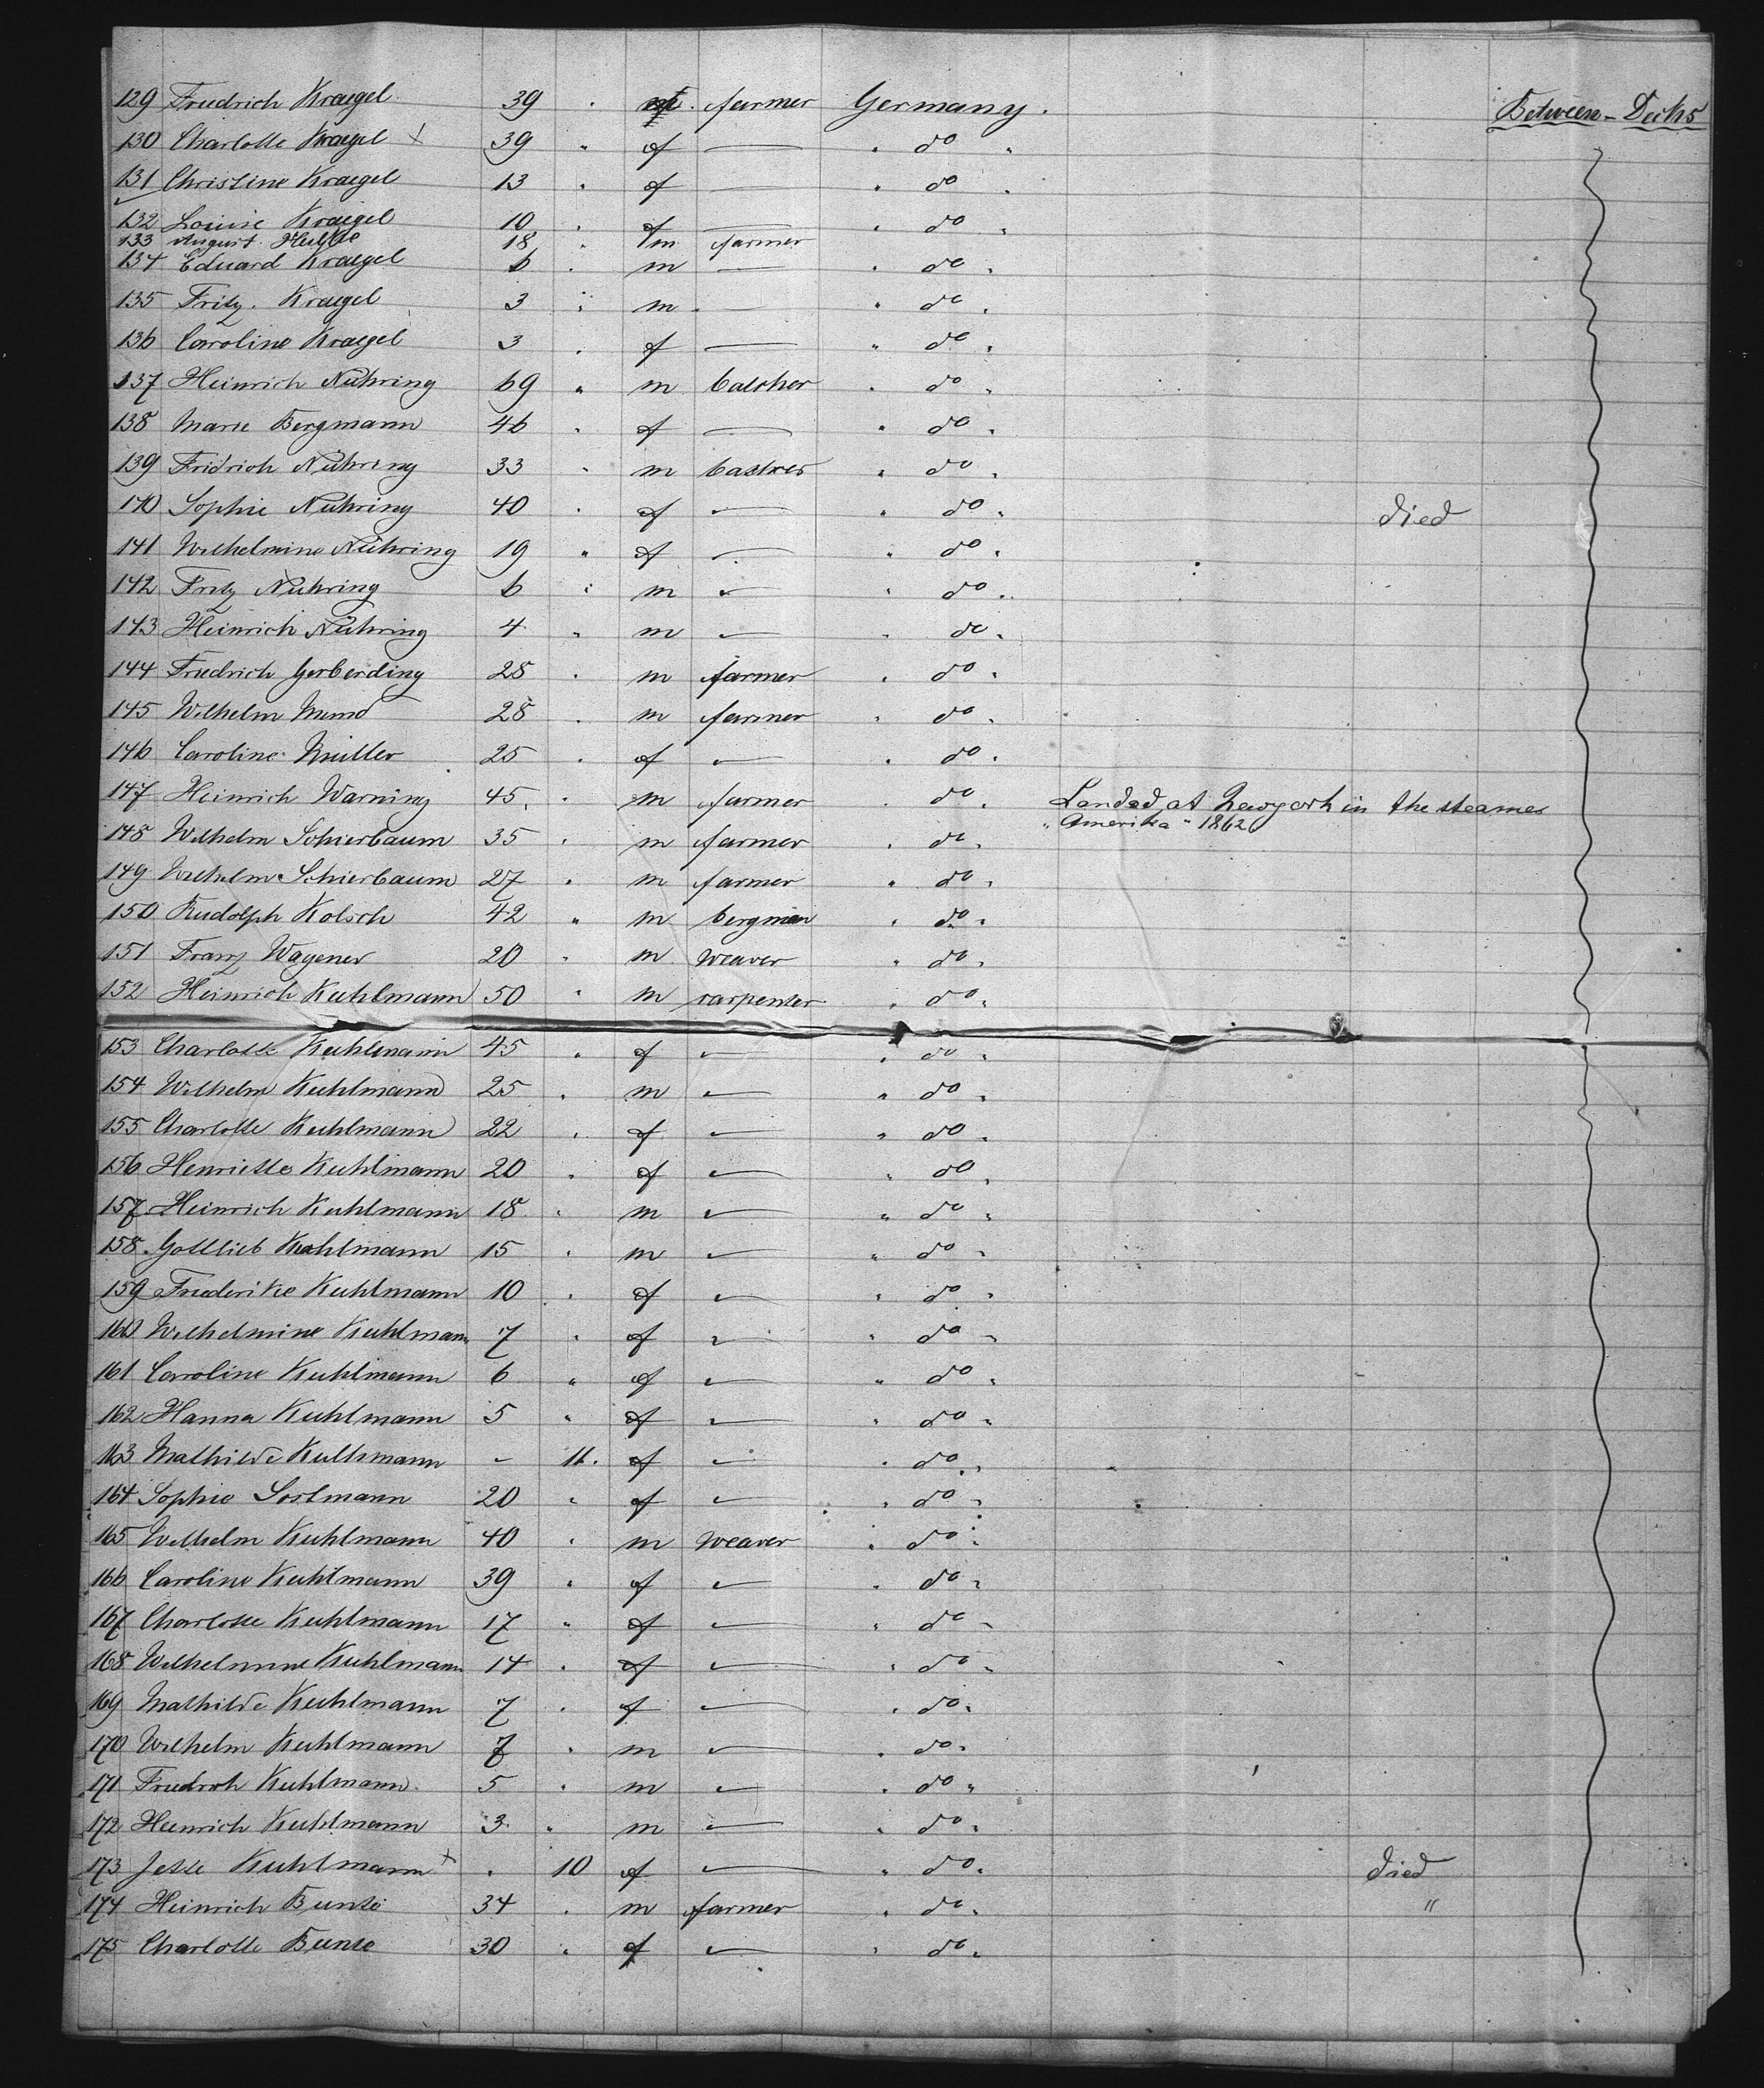 Between-Decks
129 Friedrich Kraegel 39 " m. farmer Germany.
130 Charlotte Kraegel x 39 " f — " do "
131 Christine Kraegel 13 " f — " do "
132 Louise Kraegel 10 " f — " do "
133 August 18 " m farmer
134 Eduard Kraegel 6 " m — " do "
135 Fritz Kraegel 3 " m — " do "
136 Caroline Kraegel 3 " f — " do "
137 Heinrich Nühring 69 " m " do "
138 Marie Bergmann 46 " f — " do "
139 Fridrich Nühring 33 " m " do "
140 Sophie Nühring 40 " f — " do " died
141 Wilhelmine Nühring 19 " f — " do "
142 Fritz Nühring 6 " m — " do "
143 Heinrich Nühring 4 " m — " do "
144 Friedrich Gerberding 28 " m farmer " do "
145 Wilhelm 28 " m farmer " do "
146 Caroline Müller 25 " f — " do "
147 Heinrich Warning 45 " m farmer " do " Landed at Newyork in the steamer
"Amerika" 1862
148 Wilhelm Schierbaum 35 " m farmer " do "
149 Wilhelm Schierbaum 27 " m farmer " do "
150 Rudolph Kolsch 42 " m bergman " do "
151 Franz Wagener 20 " m weaver " do "
152 Heinrich Kuhlmann 50 " m carpenter " do "
153 Charlotte Kuhlmann 45 " f — " do "
154 Wilhelm Kuhlmann 25 " m — " do "
155 Charlotte Kuhlmann 22 " f — " do "
156 Henriette Kuhlmann 20 " f — " do "
157 Heinrich Kuhlmann 18 " m — " do "
158 Gottlieb Kuhlmann 15 " m — " do "
159 Friederike Kuhlmann 10 " f — " do "
160 Wilhelmine Kuhlmann 7 " f — " do "
161 Caroline Kuhlmann 6 " f — " do "
162 Hanna Kuhlmann 5 " f — " do "
163 Mathilde Kulhmann - 11. f — " do "
164 Sophie Sostmann 20 " f — " do "
165 Wilhelm Kuhlmann 40 " m weaver " do "
166 Caroline Kuhlmann 39 " f — " do "
167 Charlotte Kuhlmann 17 " f — " do "
168 Wilhelmine Kuhlmann 14 " f — " do "
169 Mathilde Kuhlmann 7 " f — " do "
170 Wilhelm Kuhlmann 7 " m — " do "
171 Friedrich Kuhlmann 5 " m — " do "
172 Heinrich Kuhlmann 3 " m — " do "
173 Jette Kuhlmann x " 10 f — " do " died
174 Heinrich Bunte 34 " m farmer " do " "
175 Charlotte Bunte 30 " f — " do "